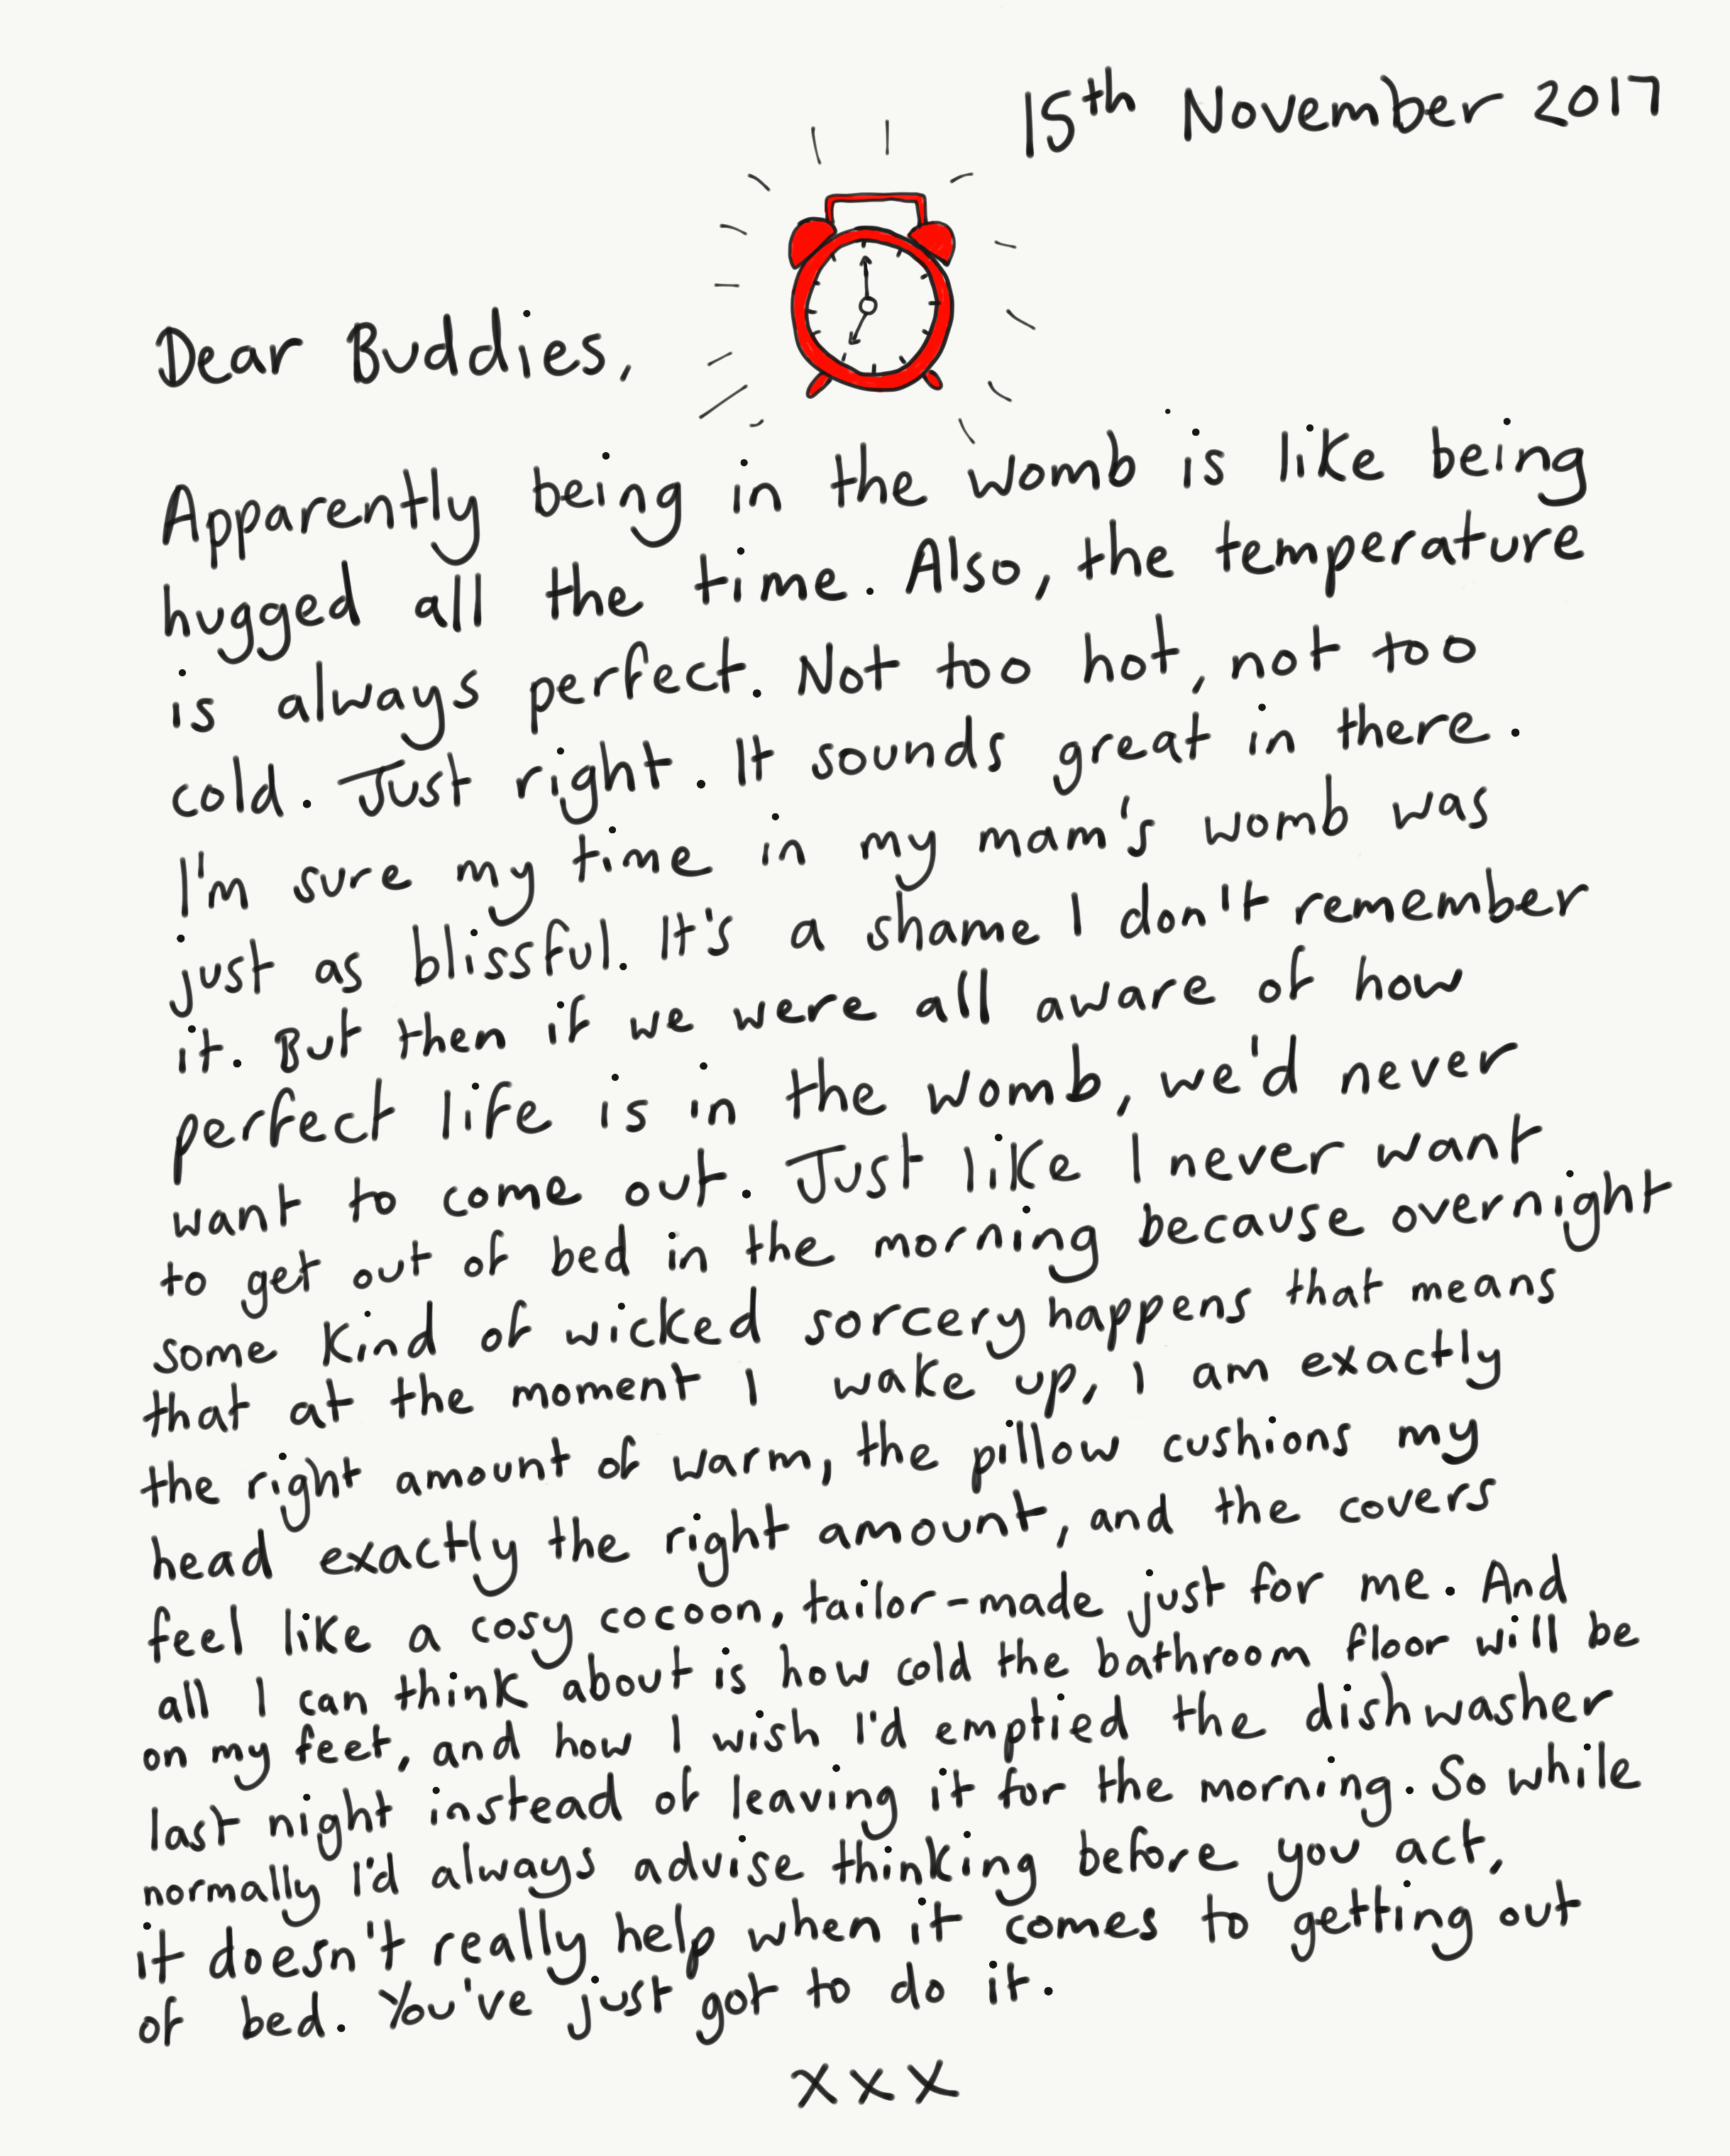 15th November 2017
Dear Buddies,
Apparently being in the womb is like being
hugged all the time. Also, the temperature
is always perfect. Not too hot, not too
cold. Just right. It sounds great in there.
I'm sure my time in my mam's womb was
just as blissful. It's a shame I don't remember
it. But then if we were all aware of how
perfect life is in the womb, we'd never
want to come out. Just like I never want
to get out of bed in the morning because overnight
some kind of wicked sorcery happens that means
that at the moment I wake up, I am exactly
the right amount of warm, the pillow cushions my
head exactly the right amount, and the covers
feel like a cosy cocoon, tailor-made just for me. And
all I can think about is how cold the bathroom floor will be
on my feet, and how I wish I'd emptied the dishwasher
last night instead of leaving it for the morning. So while
normally I'd always advise thinking before you act,
it doesn't really help when it comes to getting out
of bed. You've just got to do it.
xxx